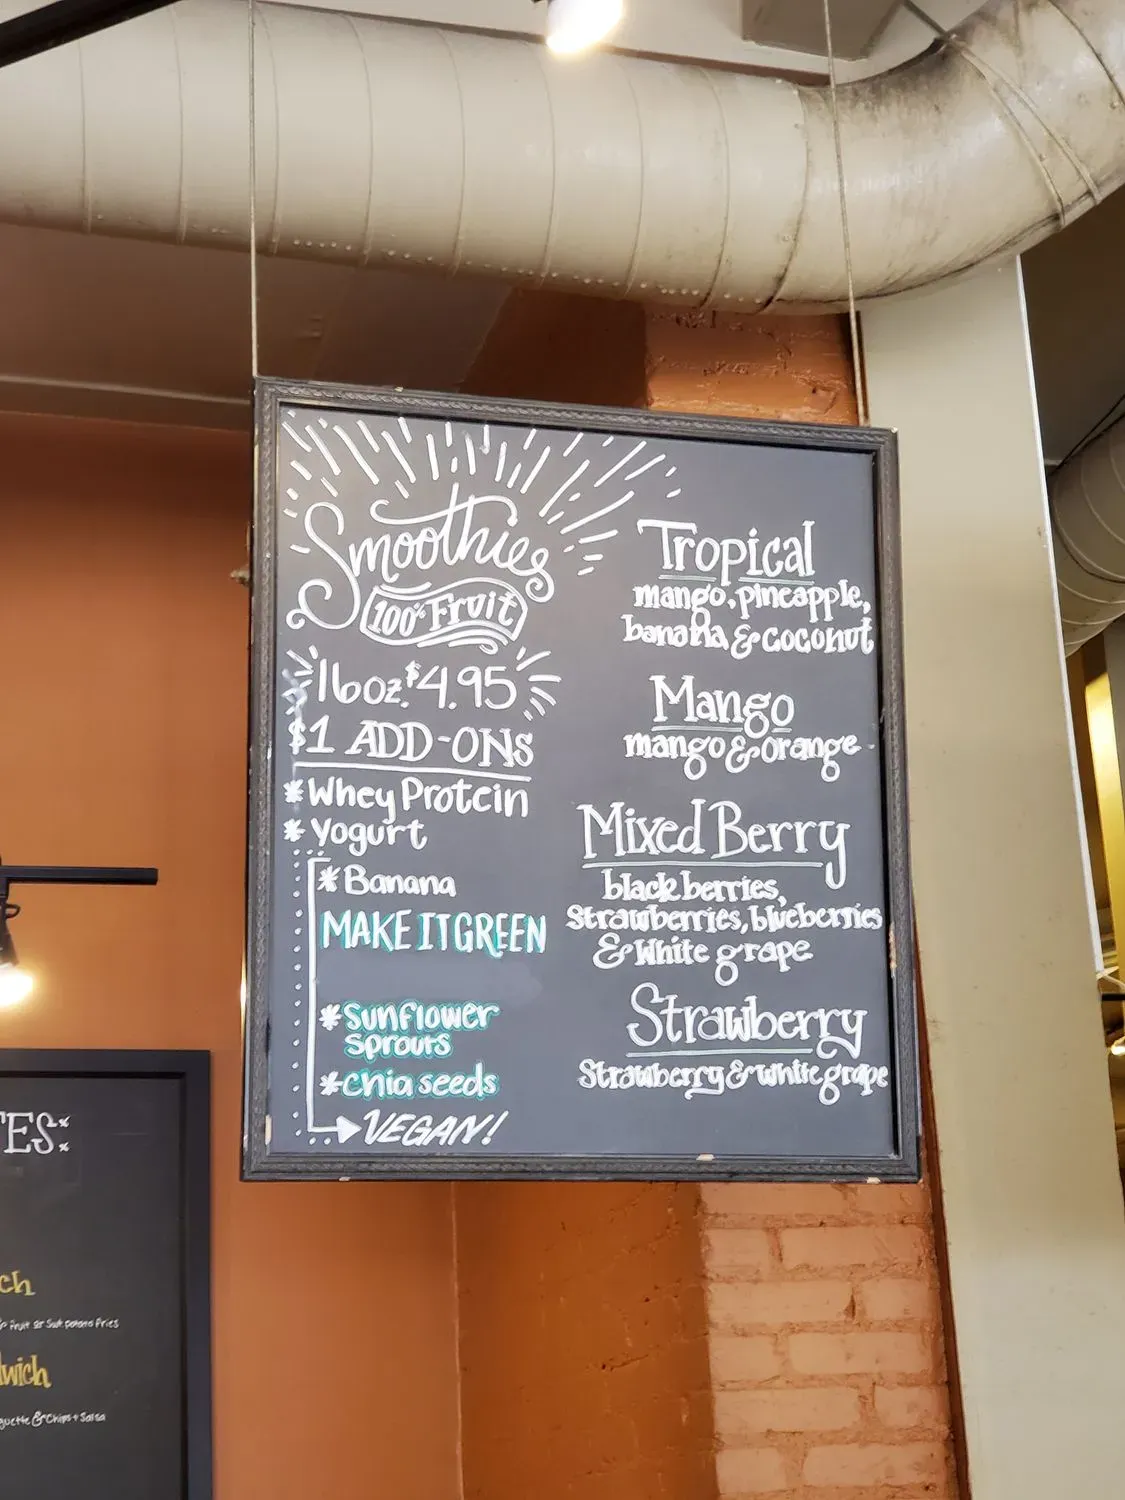 Smoothies
100% Fruit
16oz. $4.95
$1 ADD-ONS
* Whey Protein
* Yogurt
* Banana
MAKE IT GREEN
* Sunflower
sprouts
* Chia seeds
VEGAN!
Tropical
mango, pineapple,
banana & coconut
Mango
mango & orange
Mixed Berry
blackberries,
Strawberries, blueberries
& White grape
Strawberry
Strawberry & white grape
TES:
ch
Fruit or Swt potato Fries
wich
guette & Chips + Salsa